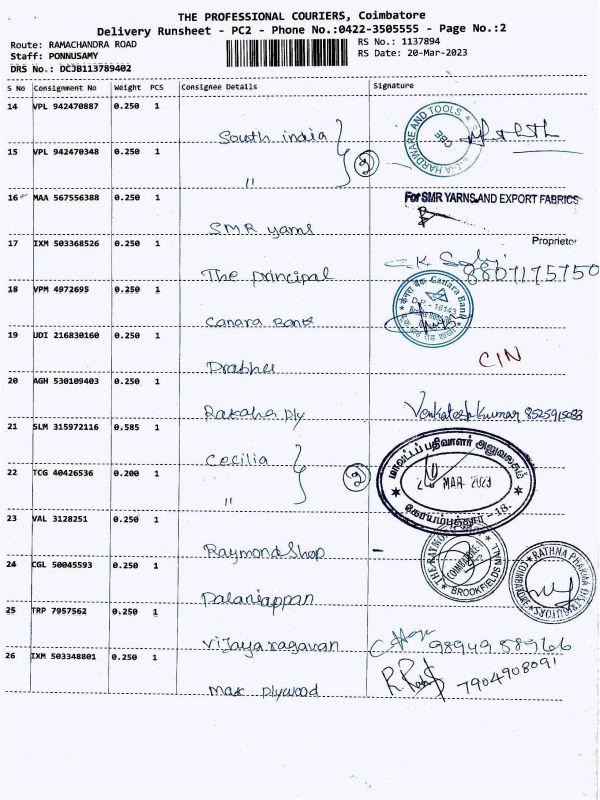 THE PROFESSIONAL COURIERS, Coimbatore
Delivery Runsheet - PC2 - Phone No.:0422-3505555 - Page No.:2
Route: RAMACHANDRA ROAD
Staff: PONNUSAMY
DRS No.: DCJB113789402
RS No.: 1137894
RS Date: 20-Mar-2023
S No Consignment No Weight PCS Consignee Details Signature
14 VPL 942470887 0.250 1
South india
15 VPL 942470348 0.250 1
"
2
HARDWARE AND TOOLS
CBE
16 MAA 567556388 0.250 1
For SMR YARNS AND EXPORT FABRICS
SMR yarns
Proprietor
17 IXM 503368526 0.250 1
The principal
8807175750
18 VPM 4972695 0.250 1
Canara Bank
केनरा बैंक Canara Bank
D.P - 16143
19 UDI 216830160 0.250 1
Prabhu
CIN
20 AGH 530109403 0.250 1
ply
Venkatesh kumar 8525915083
21 SLM 315972116 0.585 1
Cecilia
22 TCG 40426536 0.200 1
"
2
மாவட்டப் பதிவாளர் அலுவலகம்
MAR 2023
கோயம்புத்தூர் - 18.
23 VAL 3128251 0.250 1
Raymond Shop
THE RAYMOND
COIMBATORE
BROOKFIELDS MALL
24 CGL 50045593 0.250 1
Palaniappan
RATHNA PHARMA DISTRIBUTORS
COIMBATORE
25 TRP 7957562 0.250 1
Vijaya ragavan
98949 58966
26 IXM 503348801 0.250 1
Max plywood
7904908091